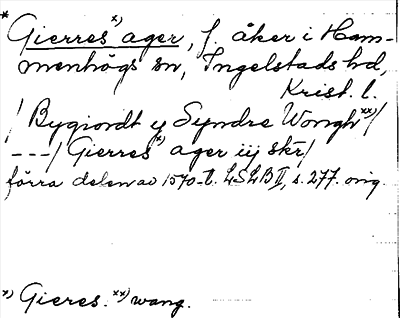 * Gierres x) ager, f. åker i Ham-
menhögs sn, Ingelstads hd,
Krist. l.
/ Bygiordt y Syndre Wongh xx)/
---/ Gierres x) ager iij skr/
förra delen av 1570-t. LSLB II, s. 277. orig.
x) Gieres. xx) wang.